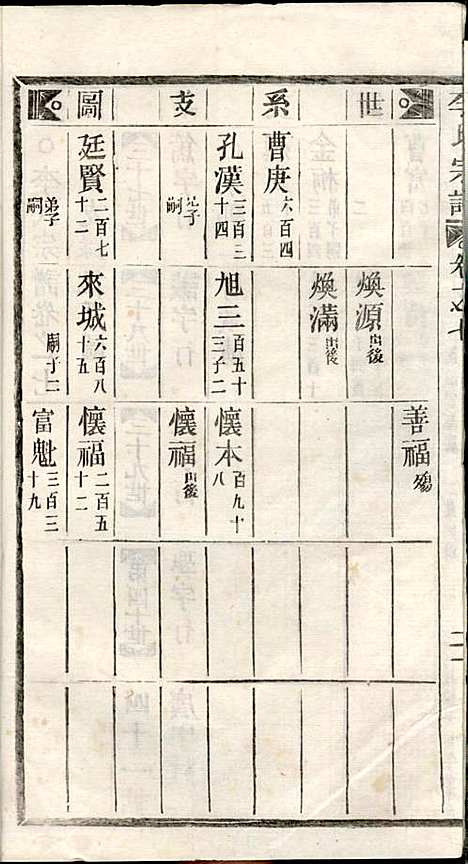 世系支圖
善福殤
煥源出後
煥滿出後
曹庚六百四
孔漢三百三十四
旭三百五十三子二
懷本百九十八
弟子嗣
懷福出後
廷賢二百七十二
來城六百八十五
懷福二百五十二
弟子嗣
嗣子二
富魁三百三十九
李氏宗譜